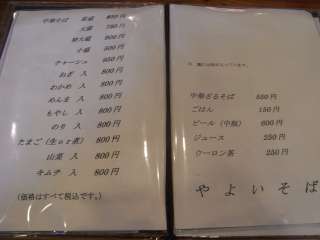 中華そば 並盛
大盛
特大盛
小盛
チャーシュー
ねぎ 入 800円
わかめ 入 800円
めんま 入 800円
もやし 入 800円
のり 入 800円
たまご(生or煮) 800円
山菜 入 800円
キムチ 入 800円
(価格はすべて税込です。)
中華ざるそば 850円
ごはん 150円
ビール(中瓶) 600円
ジュース 250円
ウーロン茶 250円
やよいそば